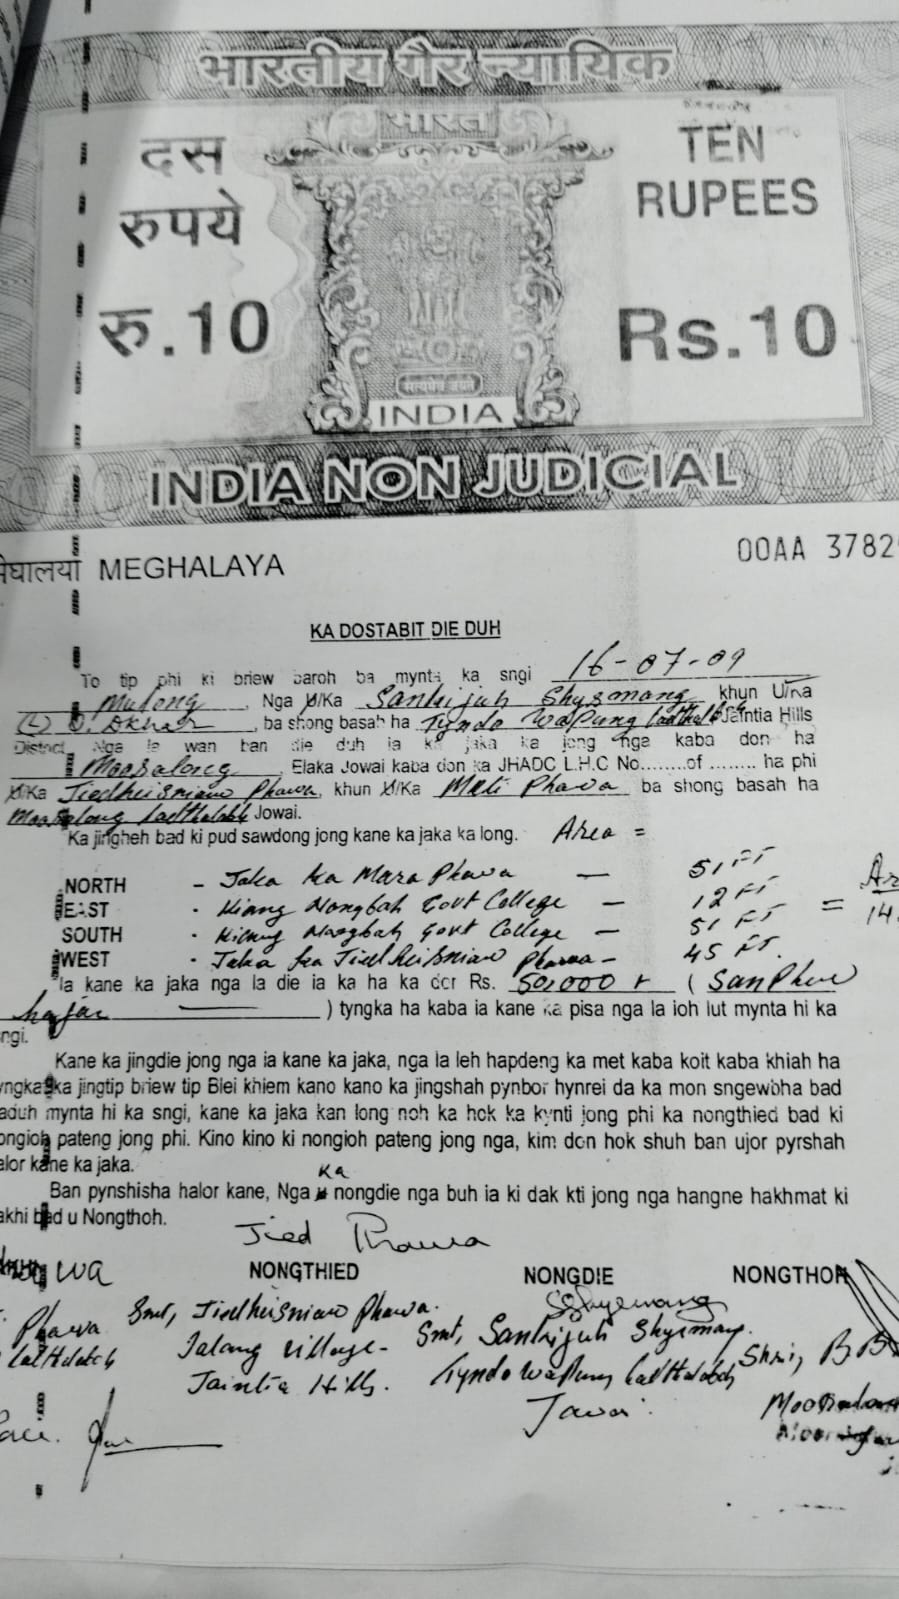 भारतीय गैर न्यायिक
भारत
दस
रुपये
रु.10
TEN
RUPEES
Rs.10
सत्यमेव जयते
INDIA
INDIA NON JUDICIAL
मेघालया MEGHALAYA
00AA 3782
KA DOSTABIT DIE DUH
To tip phi ki briew baroh ba mynta ka sngi 16-07-09
Mulong, Nga U/Ka Sankijuh Shysmang khun U/Ka
(L) O. Dkhar, ba shong basah ha Tyndo Wapung Ladthalaboh Jaintia Hills
District. Nga la wan ban die duh ia ka jaka ka jong nga kaba don ha
Moosalong, Elaka Jowai kaba don ka JHADC L.H.C No........of ........ ha phi
U/Ka Jiedheisniaw Phawa, khun U/Ka Muli Phawa ba shong basah ha
Moosalong Ladthalaboh Jowai.
Ka jingheh bad ki pud sawdong jong kane ka jaka ka long. Area =
NORTH - Jaka ka Mara Phawa — 51 FT
EAST - Kiang Nongbah Govt College — 12 FT
SOUTH - Kiang Nongbah Govt College — 51 FT =
WEST - Jaka ka Jiedheisniaw Phawa - 45 FT.
Ia kane ka jaka nga la die ia ka ha ka dor Rs. 50,000 (San Phew
hajar) tyngka ha kaba ia kane ka pisa nga la ioh lut mynta hi ka
sngi.
Kane ka jingdie jong nga ia kane ka jaka, nga la leh hapdeng ka met kaba koit kaba khiah ha
ka jingtip briew tip Blei khlem kano kano ka jingshah pynbor hynrei da ka mon sngewbha bad
naduh mynta hi ka sngi, kane ka jaka kan long noh ka hok ka kynti jong phi ka nongthied bad ki
nongioh pateng jong phi. Kino kino ki nongioh pateng jong nga, kim don hok shuh ban ujor pyrshah
halor kane ka jaka.
Ka
Ban pynshisha halor kane, Nga nongdie nga buh ia ki dak kti jong nga hangne hakhmat ki
sakhi bad u Nongthoh.
Jied Phawa
NONGTHIED NONGDIE NONGTHOH
SShysmang
Phawa Smt, Jiedheisniaw Phawa. Smt, Sankijuh Shysmang. Shri, B B
Jalong Village- Tyndo Wapung Ladthalaboh
Jaintia Hills. Jowai.